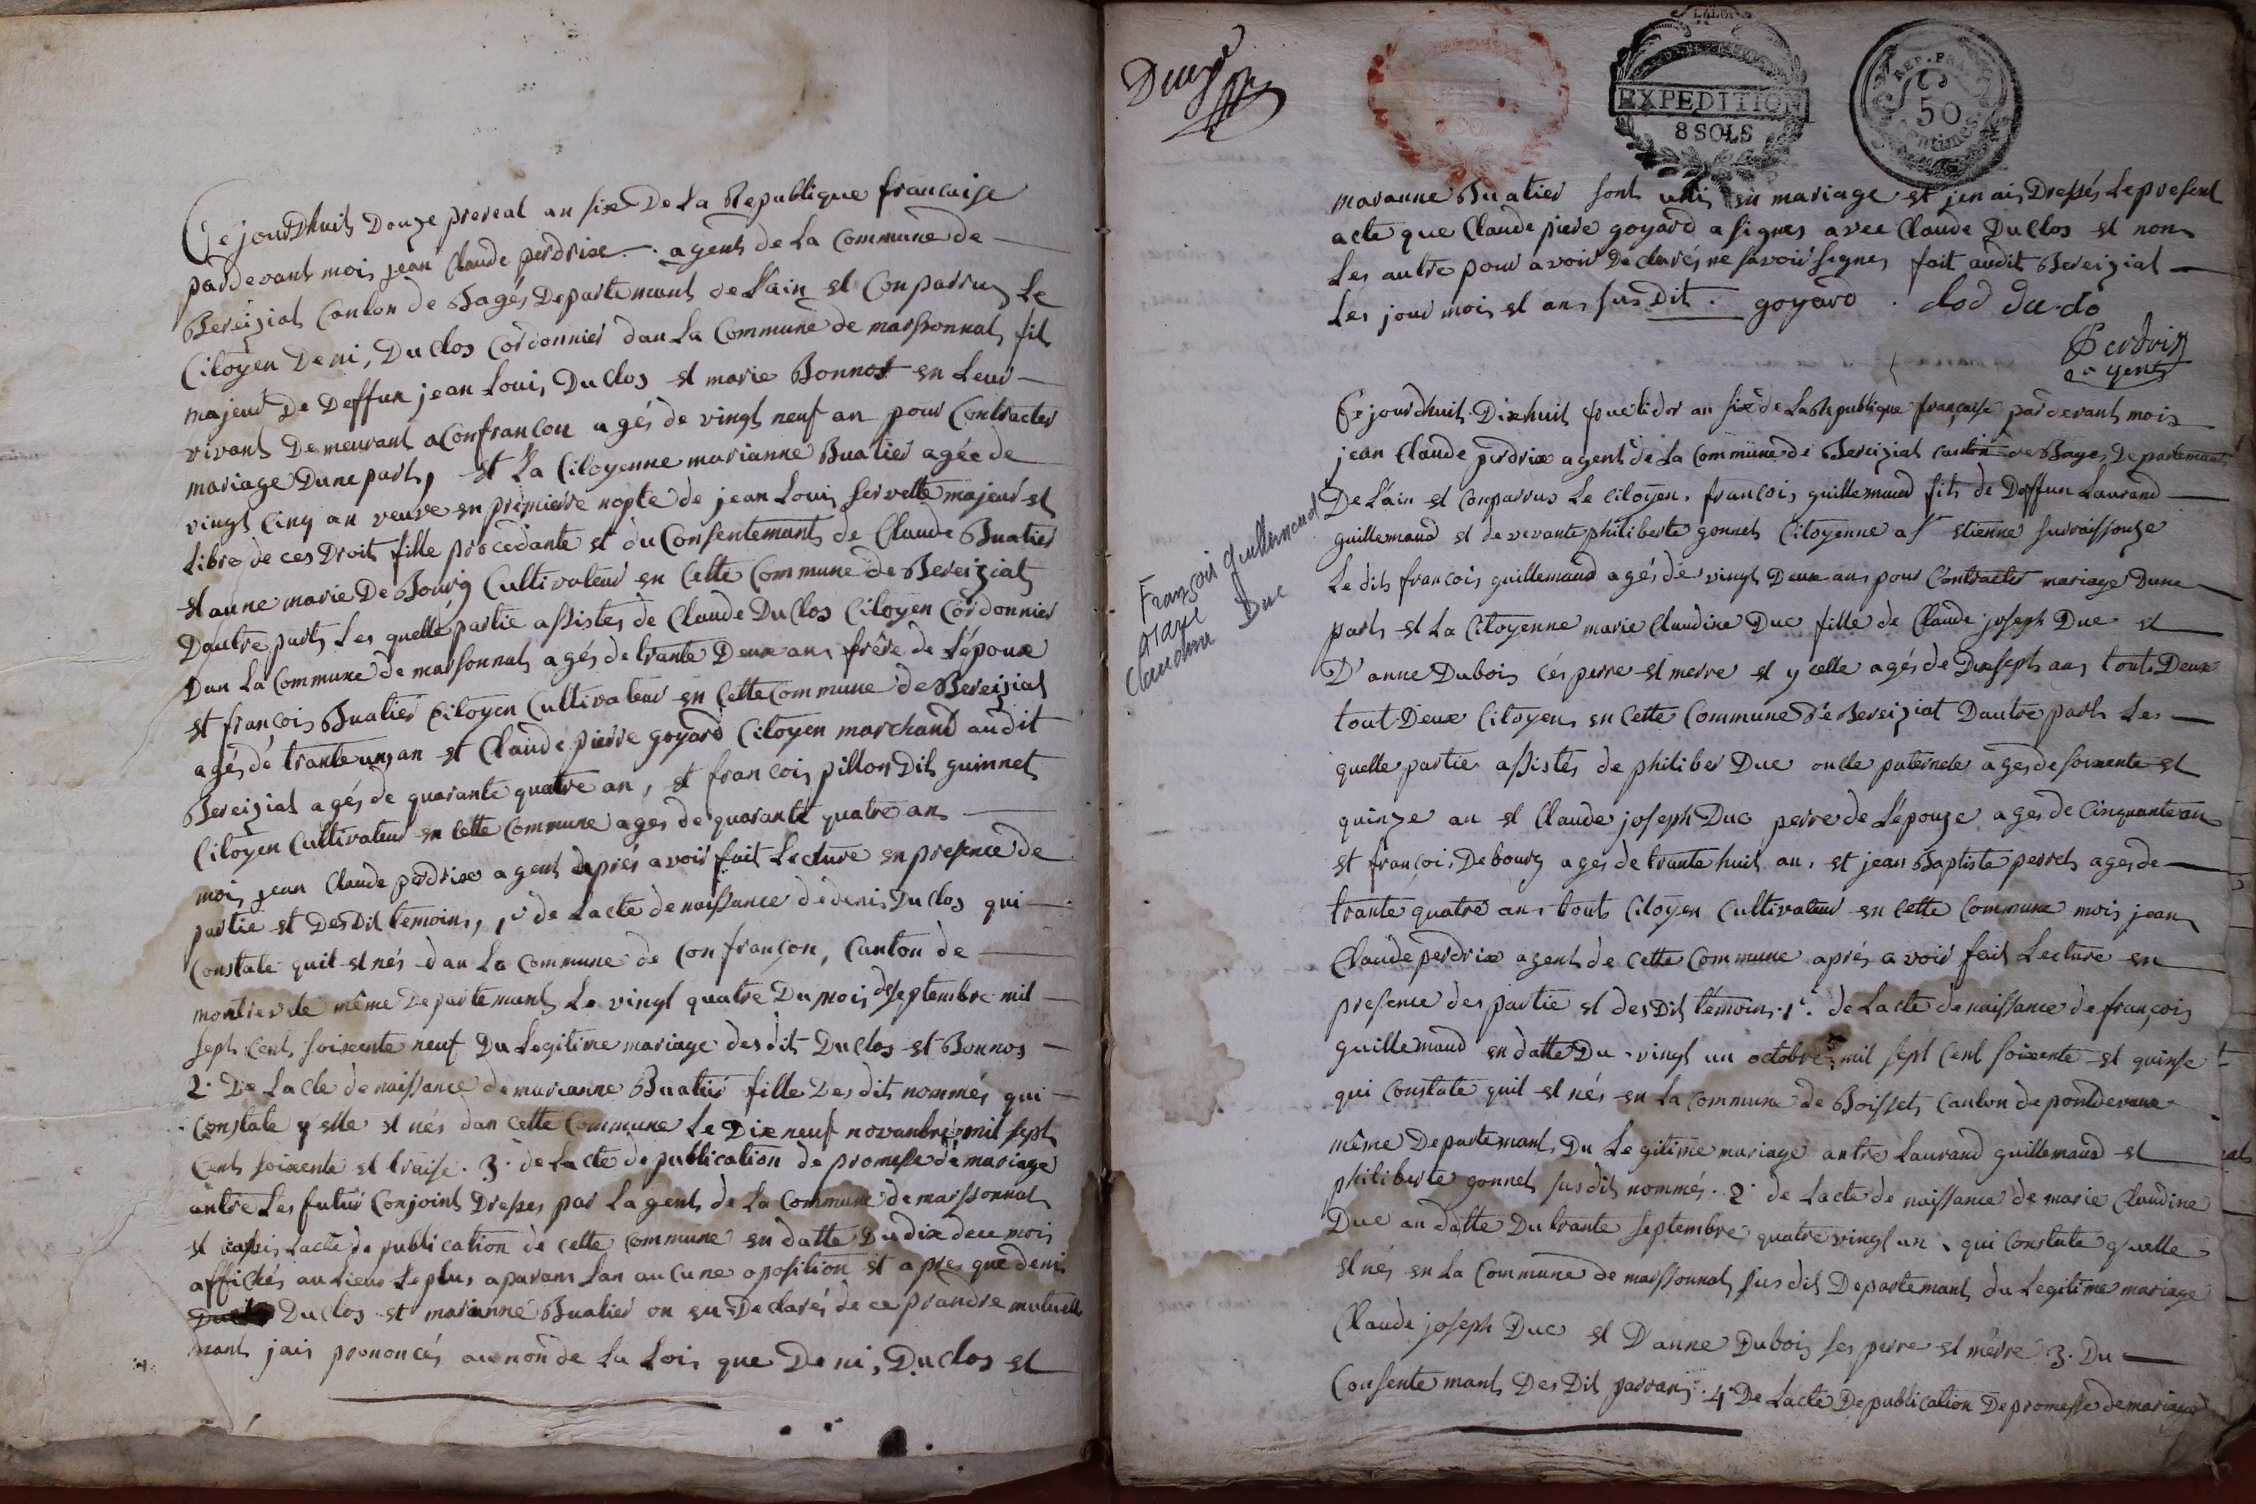 Ce jourdhuit Douze prereal an six De La Republique francaise
pardevant mois jean Claude perdrix agent de La Commune de
Bereiziat Canton de Bagés Departemant de Lain et Conparruz Le
Citoyen Deni, Duclos Cordonnier dan La Commune de marsonnat fils
majeur de Deffun jean Loui, Duclos et marie Bonnot en Leur
vivant Demeurant a Confrancon agés de vingt neuf an pour Contracter
mariage Dune part, et La Citoyenne marianne Buatier agée de
vingt Cinq an veuve en premierre nopte de jean Loui, servette majeur et
Libre de ces Droit fille procedante et du Consentemant de Claude Buatier
et anne marie De Bourg Cultivateur en Cette Commune de Bereiziat
Dautre part Les quelle partie assistes de Claude Duclos Citoyen Cordonnier
Dan La Commune de marsonnat agés de trante Deux an, frêre de L'époux
et francois Buatier Citoyen Cultivateur en Cette Commune de Bereiziat
agés de trante un, an et Claude pierre goyard Citoyen marchand audit
Bereiziat agés de quarante quatre an, et francois pillon Dit guinnet
Citoyen Cultivateur en Cette Commune ages de quarante quatre an
mois jean Claude perdrix agent aprés avoir fait Lecture en presence de
partie et Desdit temoins, 1º de Lacte de naissance de denis Duclos qui
Constate quil et nés dan La Commune de Confrançon, Canton de
montrevele même Departemant Le vingt quatre Du mois de septembre mil
sept Cent soixente neuf Du Legitime mariage desdit Duclos et Bonnos
2. De Lacte de naissance de marianne Buatier fille Desdit nommés qui
Constate y elle et nés dan Cette Commune Le Dixneuf novanbre mil sept
Cent soixente et traise. 3. de Lacte de publication de promesse de mariage
antre Les futur Conjoint Dresses par Lagent de La Commune de marssonnat
et Lacte de publication de cette Commune en datte Du dix dece mois
affichés au Lieux Le plus aparans San aucune oposition et apres que deni
Duclos et marianne Buatier on eu Declarés de ce prandre mutuelle
mant jais prononcés au nom de La Lois que Deni, Duclos et
Duc
EXPEDITION
8 SOLS
REP. FRA.
50
Centimes
maranne Buatier sont unis en mariage et jenais Dressés Le present
acte que Claude piere goyard a signes avec Claude Duclos et non
Les autre pour avoir Declarés ne savoir signes fait audit Bereiziat
Les jour mois et an susdit. goyard. clod du clo
Perdrix
agent
Ce jourdhuit Dixhuit fructidor an six de La Republique française pardevant mois
jean Claude perdrix agent de La Commune de Bereiziat canton de Bages Departemant
De Lain et Conparrus Le Citoyen, francois guillemaud fils de Deffun Laurand
guillemaud et de vivante philiberte gonnet Citoyenne a St etienne surraissouze
Le dit francois guillemaud agés de vingt Deux ans pour Contracter mariage Dune
part et La Citoyenne marie Claudine Duc fille de Claude joseph Duc et
D'anne Dubois Cés perre et merre et y celle agés de Dixsept ans tout Deux
tout Deux Citoyen en Cette Commune de Bereiziat Dautre part Les
quelle partie assistés de philiber Duc oncle paternele agés de soixente et
quinze an et Claude joseph Duc perre de Lépouze agés de Cinquante an
et françoi, Debourg agés de trante huit an, et jean Baptiste perret agés de
trante quatre an, tout Citoyen Cultivateur en Cette Commune mois jean
Claude perdrix agent de Cette Commune aprés avoir fait Lecture en
presence des partie et desdit témoins. 1º. de Lacte de naissance de françois
guillemaud en datte Du vingt un octobre mil sept Cent soixente et quinse
qui Constate quil et nés en La Commune de Boisset, Canton de pontdevaux
même Departemant Du Legitime mariage antre Laurand guillemaud et
philiberte gonnet susdit nommés. 2. de Lacte de naissance de marie Claudine
Duc an datte Du trante septembre quatre vingt un, qui Constate quelle
et nés en La Commune de marssonnat susdit Departemant du Legitime mariage
Claude joseph Duc et D'anne Dubois ses perre et mérre 3. Du
Consentemant Desdit parrans. 4 De Lacte De publication De promesse de mariage
François Guillemaud
Marie
Claudine Duc